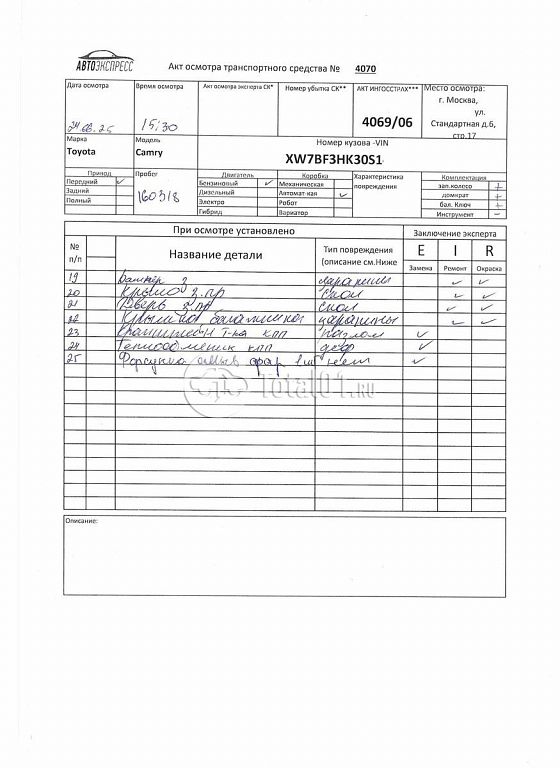 АВТОЭКСПРЕСС
Акт осмотра транспортного средства № 4070
Дата осмотра
Время осмотра
Акт осмотра эксперта СК*
Номер убытка СК**
АКТ ИНГОССТРАХ***
Место осмотра:
г. Москва,
ул.
Стандартная д.6,
стр.17
24.06.25
15:30
4069/06
Марка
Модель
Номер кузова -VIN
Toyota
Camry
XW7BF3HK30S1
Привод
Пробег
Двигатель
Коробка
Характеристика
повреждения
Комплектация
Передний ✓
160318
Бензиновый ✓
Механическая
зап.колесо +
Задний
Дизельный
Автомат-кая ✓
домкрат +
Полный
Электро
Робот
бал. Ключ +
Гибрид
Вариатор
Инструмент –
При осмотре установлено
Заключение эксперта
№
п/п
Название детали
Тип повреждения
(описание см.Ниже
E I R
Замена Ремонт Окраска
19 Бампер з царапины ✓ ✓
20 Крыло з.пр скол ✓ ✓
21 Дверь з.пр скол ✓ ✓
22 Крышка багажника царапины ✓ ✓
23 Кронштейн т-ка кпп излом ✓
24 Теплообменник кпп деф ✓
25 Форсунка омыв фар ✓
Total01.ru
Описание: